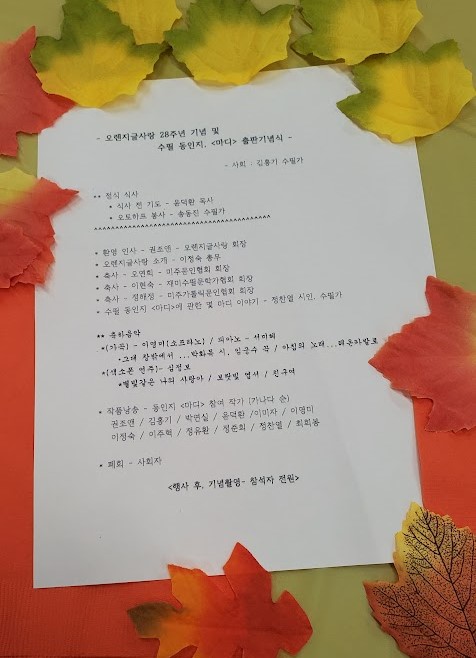 - 오렌지글사랑 28주년 기념 및
수필 동인지, <마디> 출판기념식 -
- 사회 : 김홍기 수필가
** 점심 식사
* 식사 전 기도 - 윤덕환 목사
* 오토하프 봉사 - 송동진 수필가
^^^^^^^^^^^^^^^^^^^^^^^^^^^^^^^^^^^^^^^^^^^^
* 환영 인사 - 권조앤 - 오렌지글사랑 회장
* 오렌지글사랑 소개 - 이정숙 총무
* 축사 - 오연희 - 미주문인협회 회장
* 축사 - 이현숙 - 재미수필문학가협회 회장
* 축사 - 정해정 - 미주가톨릭문인협회 회장
* 수필 동인지 <마디>에 관한 몇 마디 이야기 - 정찬열 시인, 수필가
** 축하음악
*(가곡) - 이영미(소프라노) / 피아노 - 서미혜
*그대 창밖에서 ...박화목 시, 임긍수 곡 / 아침의 노래...레온카발로
*(색소폰 연주)- 심정보
*별빛같은 나의 사랑아 / 보랏빛 엽서 / 친구여
* 작품낭송 - 동인지 <마디> 참여 작가 (가나다 순)
권조앤 / 김홍기 / 박연실 / 윤덕환 /이미자 / 이영미
이정숙 / 이주혁 / 정유환 / 정준희 / 정찬열 / 최희봉
* 폐회 - 사회자
<행사 후, 기념촬영- 참석자 전원>